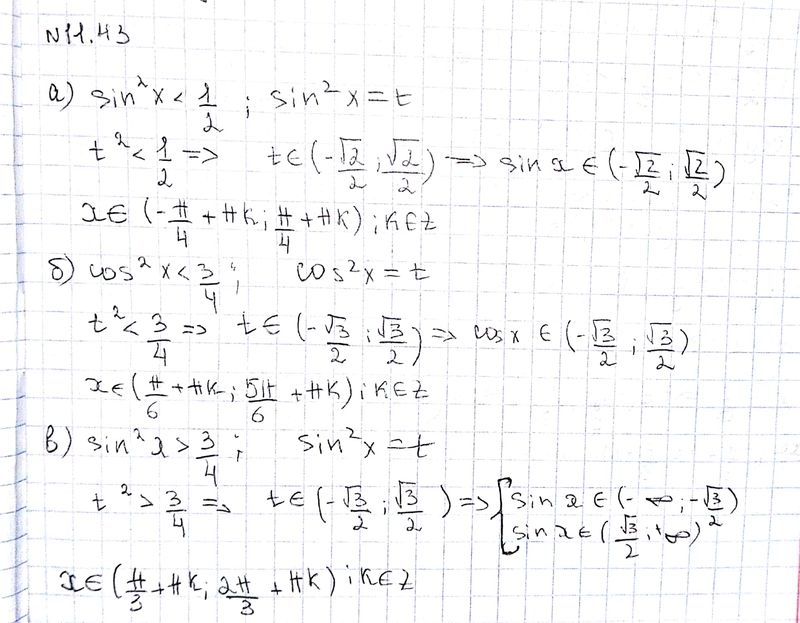 №11.43
а) sin²x < 1/2 ; sin²x = t
t² < 1/2 => t ∈ (-√2/2 ; √2/2) => sin x ∈ (-√2/2 ; √2/2)
x ∈ (-π/4 + πk ; π/4 + πk) ; k ∈ Z
б) cos²x < 3/4 ; cos²x = t
t² < 3/4 => t ∈ (-√3/2 ; √3/2) => cos x ∈ (-√3/2 ; √3/2)
x ∈ (π/6 + πk ; 5π/6 + πk) ; k ∈ Z
в) sin²x > 3/4 ; sin²x = t
t² > 3/4 => t ∈ (-√3/2 ; √3/2) => [ sin x ∈ (-∞ ; -√3/2)
sin x ∈ (√3/2 ; +∞)
x ∈ (π/3 + πk ; 2π/3 + πk) ; k ∈ Z